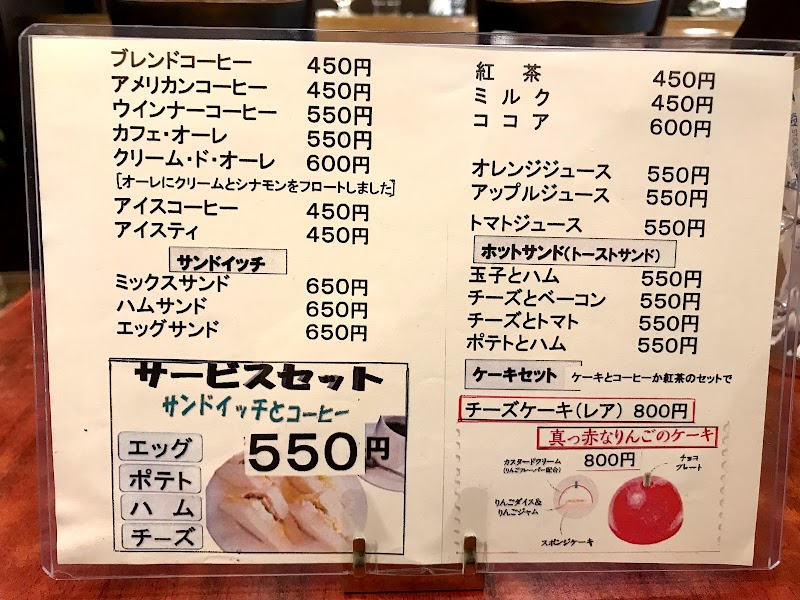 ブレンドコーヒー 450円
アメリカンコーヒー 450円
ウインナーコーヒー 550円
カフェ・オーレ 550円
クリーム・ド・オーレ 600円
[オーレにクリームとシナモンをフロートしました]
アイスコーヒー 450円
アイスティ 450円
サンドイッチ
ミックスサンド 650円
ハムサンド 650円
エッグサンド 650円
サービスセット
サンドイッチとコーヒー
550円
エッグ
ポテト
ハム
チーズ
紅茶 450円
ミルク 450円
ココア 600円
オレンジジュース 550円
アップルジュース 550円
トマトジュース 550円
ホットサンド(トーストサンド)
玉子とハム 550円
チーズとベーコン 550円
チーズとトマト 550円
ポテトとハム 550円
ケーキセット ケーキとコーヒーか紅茶のセットで
チーズケーキ(レア) 800円
真っ赤なりんごのケーキ
800円
カスタードクリーム
(りんごフレーバー配合)
チョコ
プレート
りんごダイス&
りんごジャム
スポンジケーキ